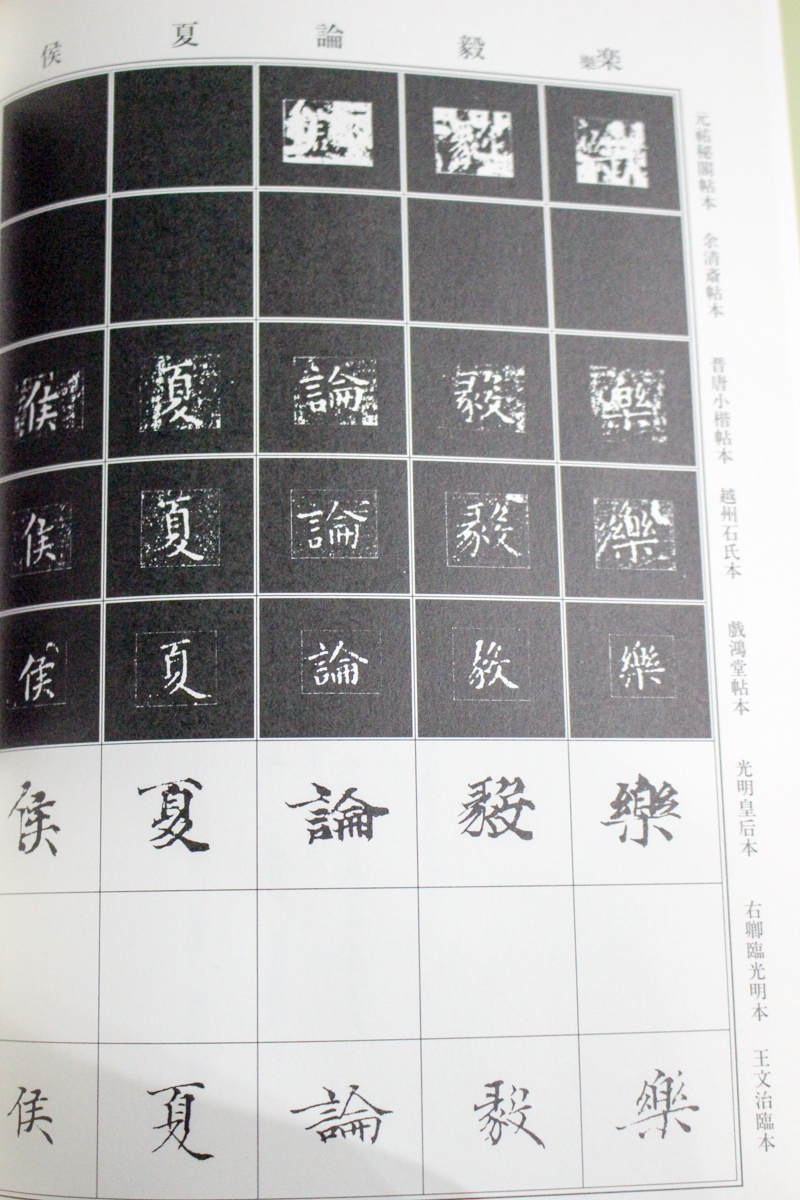 楽樂
毅
論
夏
侯
元祐秘閣帖本
余清斎帖本
晋唐小楷帖本
越州石氏本
戯鴻堂帖本
光明皇后本
右卿臨光明本
王文治臨本
樂 毅 論
樂 毅 論 夏 侯
樂 毅 論 夏 侯
樂 毅 論 夏 侯
樂 毅 論 夏 侯
樂 毅 論 夏 侯